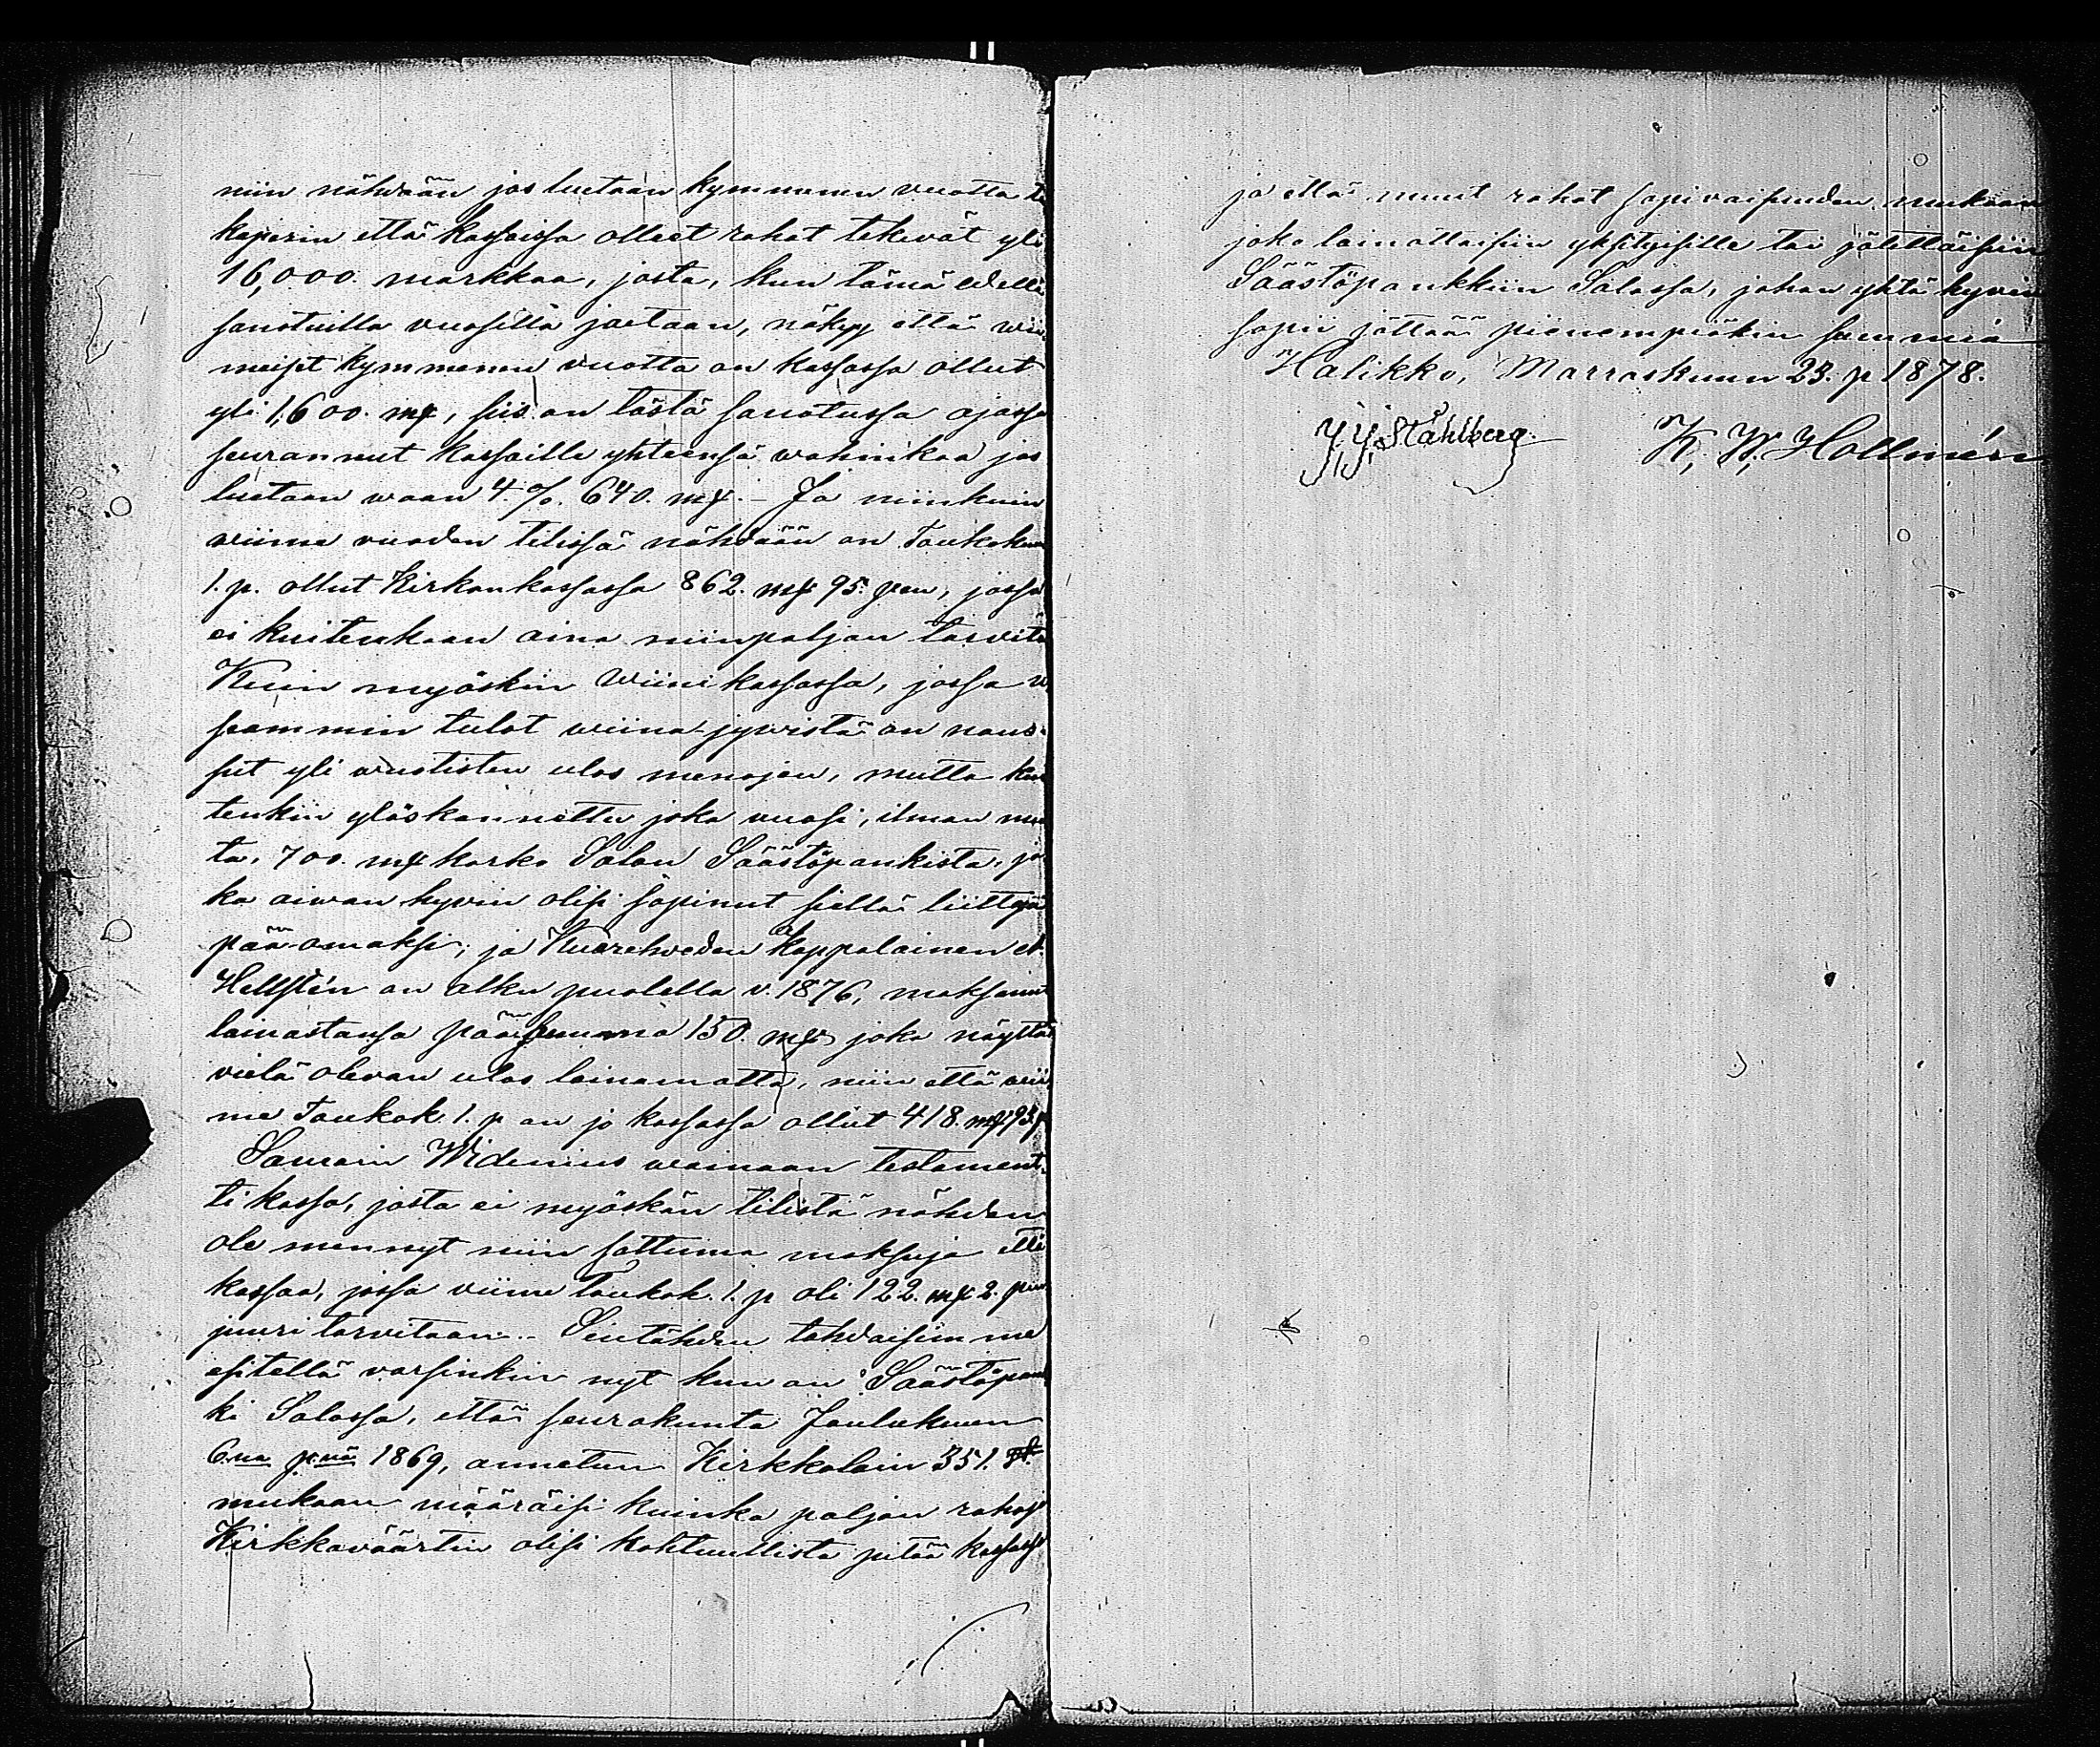 niin nähdään jos luetaan kymmenen vuotta ta
kaperin että kassaissa olleet rahat tekevät yli
16,000. markkaa, josta, kun tämä edellä
sanotuilla vuosilla jaetaan, näkyy että wii-
meiset kymmenen vuotta on kassassa ollut
yli 1,600. mk, siis on tästä sanotussa ajassa
seurannut kassoille yhteensä wahinkoa jos
luetaan waan 4. %. 640. mk. - Ja niinkuin
viime vuoden tilissä nähdään on Toukokuun
1. p. ollut Kirkonkassassa 862. mk 95. pen, jossa
ei kuitenkaan aina niinpaljon tarvita
Kuin myöskin Wiinikassassa, jossa u
seammin tulot wiina-jyvistä on nous-
sut yli wuotisten ulos menojen, mutta kui
tenkin ylöskannettu joka vuosi, ilman mui
ta, 700. mk korko Salon Säästöpankista, jo
ka aiwan hyvin olisi sopinut siellä liittyä
pää-omaksi; ja Kuorehveden Kappalainen
Hellstén on alku puolella v. 1876, maksanut
lainastansa pääsumma 150. mk joka näyttää
vielä olevan ulos lainamatta, niin että wii
me Toukok. 1. p on jo kassassa ollut 418. mk 93. p
Samoin Widenius wainaan testament-
ti kassa, josta ei myöskän tilistä nähden
ole mennyt niin sattuma maksuja että
kassaa, jossa viime Toukok. 1. p oli 122. mk 2. pen
juuri tarvitaan. - Sentähden tahdoisimme
esitellä varsinkin nyt kun on Säästöpan
ki Salossa, että seurakunta Joulukuun
6:na p:nä 1869, annetun Kirkkolain 351. §
mukaan määräisi kuinka paljon rahaa
Kirkkoväärtin olisi kohtuullista pitää kassassa
ja että muut rahat sopivaisuuden mukaan
joko lainattaisiin yksityisille tai jätettäisiin
Säästöpankkiin Salossa, johon yhtä hyvin
sopii jättää pienempiäkin summia
Halikko, Marraskuun 23. p 1878.
J. J. Ståhlberg. K. W. Hollmén